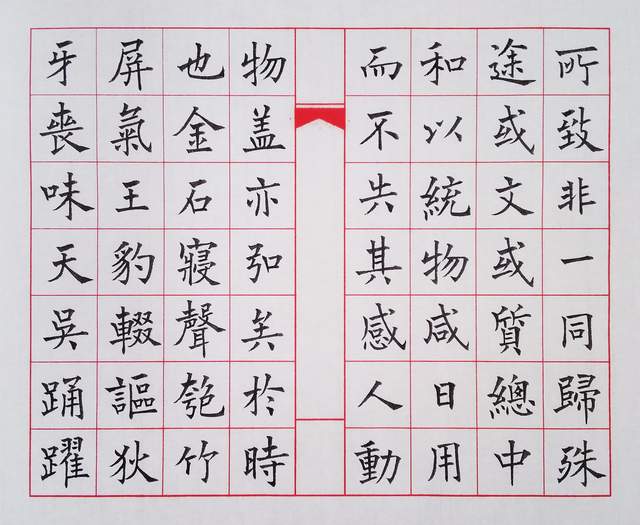 所致非一同歸殊
途或文或質總中
和以統物咸日用
而不失其感人動
物盖亦弘矣於時
也金石寢聲匏竹
屏氣王豹輟謳狄
牙喪味天吳踊躍